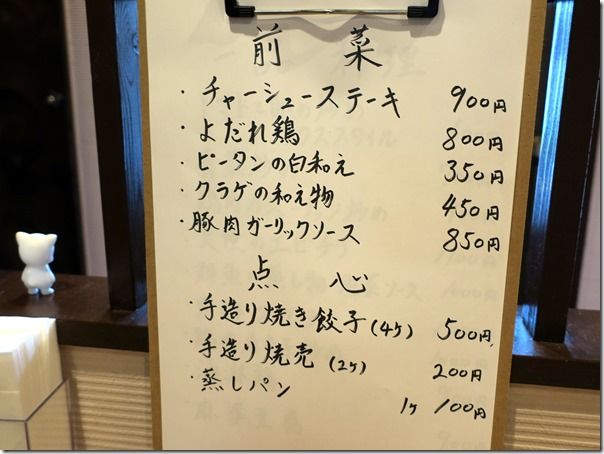 前菜
・チャーシューステーキ 900円
・よだれ鶏 800円
・ピータンの白和え 350円
・クラゲの和え物 450円
・豚肉ガーリックソース 850円
点心
・手造り焼き餃子(4ケ) 500円
・手造り焼売(2ケ) 200円
・蒸しパン 1ケ 100円